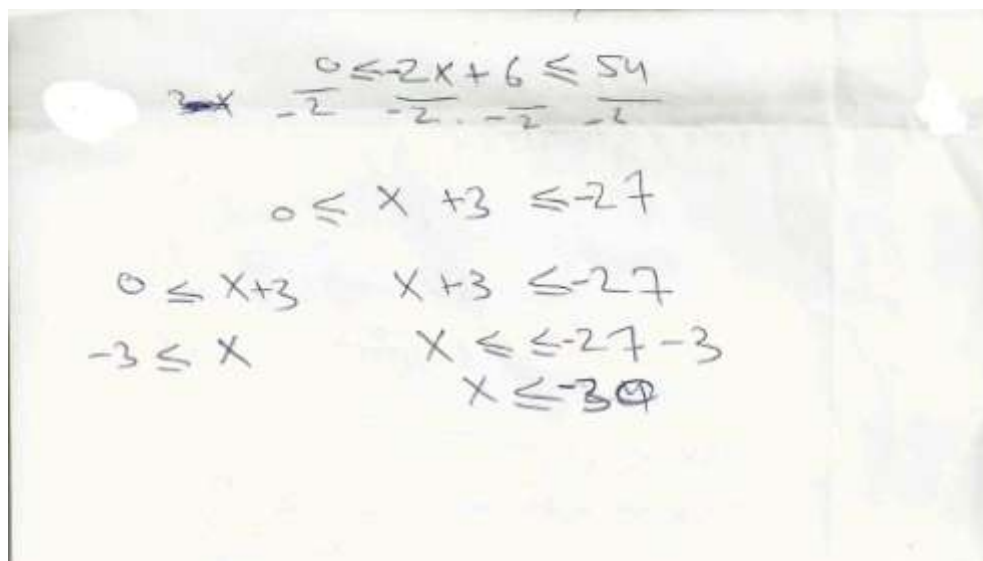 0 ≤ -2x + 6 ≤ 54
-2 -2 . -2 -2
0 ≤ x +3 ≤ -27
0 ≤ x+3 x +3 ≤ -27
-3 ≤ x x ≤ ≤ -27 -3
x ≤ -30